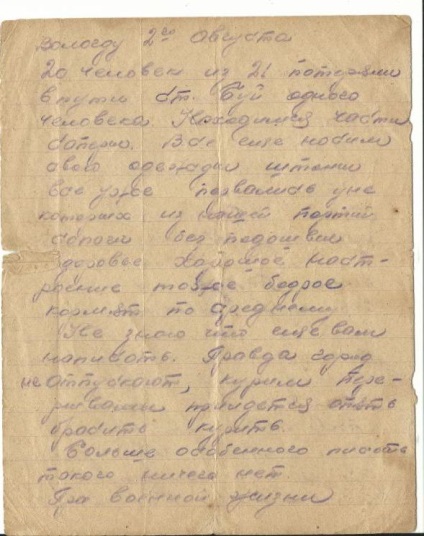 Вологду 2го Августа
20 человек из 21 потеряли
в пути ст. Буй одного
человека Находимся части
батереи. Все еще носим
свою одежду штани
все уже порвались у не
которых из нашей партий
сапоги без подошвы
Здоровье хорошое наст-
роение тоже бодрое
кормят по среднему
Не знаю что еще вам
написать. Правда город
не отпускают, курим пере-
рывами придется опять
бросить курить.
Больше особенного писать
такого ничего нет
Про военной жизни